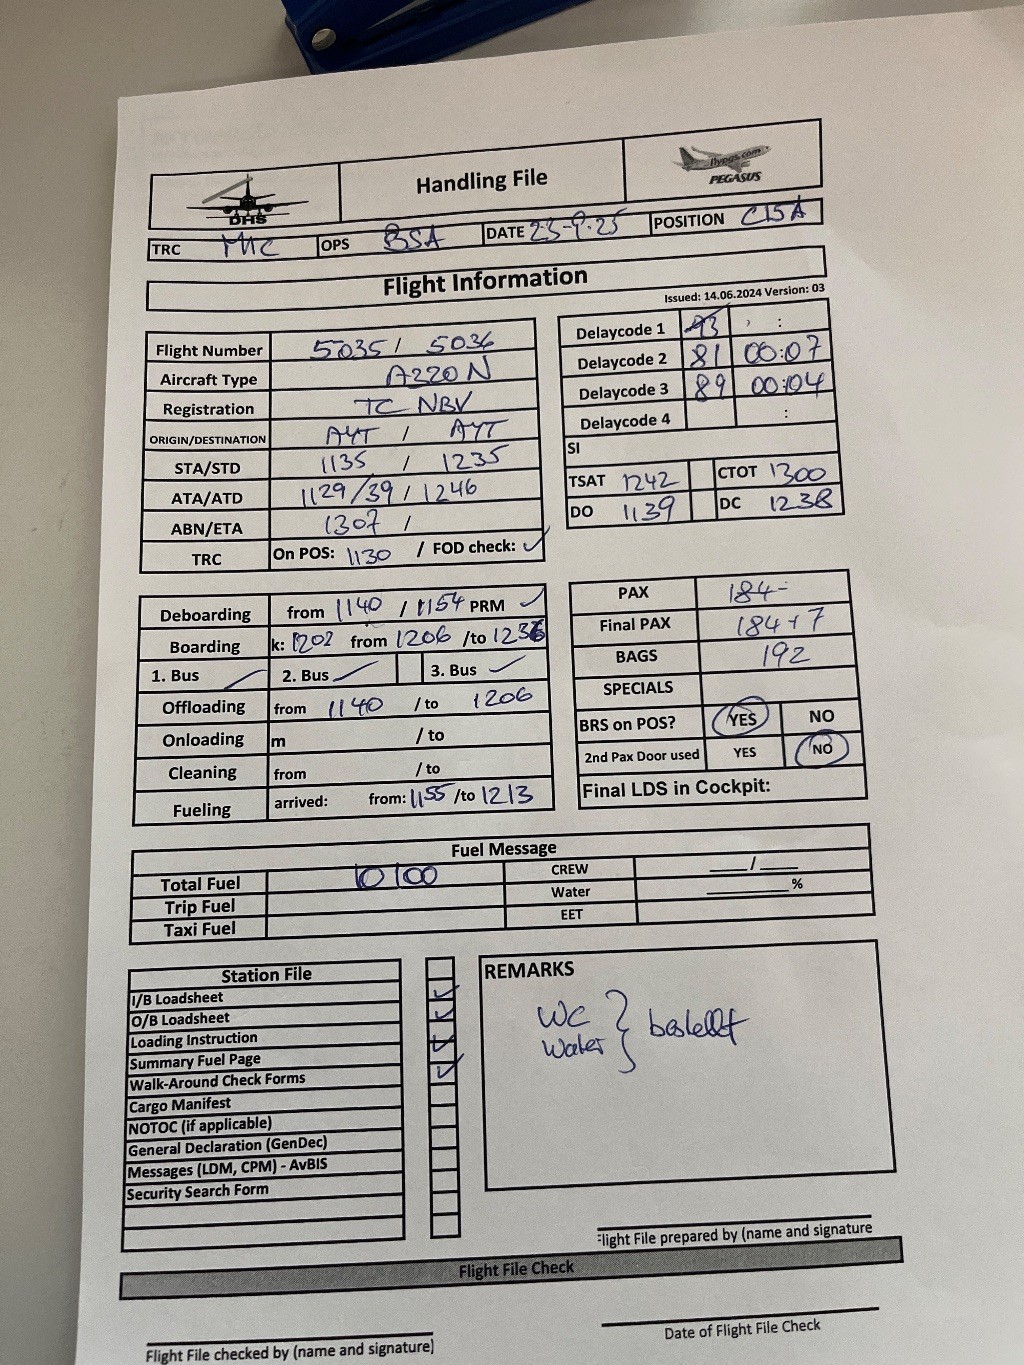 DHS
Handling File
flypgs.com
PEGASUS
TRC
OPS BSA
DATE 23-9-25
POSITION C15A
Flight Information
Issued: 14.06.2024 Version: 03
Flight Number 5035 / 5036
Aircraft Type A220N
Registration TC NBV
ORIGIN/DESTINATION AYT / AYT
STA/STD 1135 / 1235
ATA/ATD 1129/39 / 1246
ABN/ETA 1307 /
TRC On POS: 1130 / FOD check: ✓
Delaycode 1 93 :
Delaycode 2 81 00:07
Delaycode 3 89 00:04
Delaycode 4 :
SI
TSAT 1242 CTOT 1300
DO 1139 DC 1238
Deboarding from 1140 / 1154 PRM ✓
Boarding k: 1202 from 1206 /to 1236
1. Bus ✓ 2. Bus ✓ 3. Bus ✓
Offloading from 1140 / to 1206
Onloading m / to
Cleaning from / to
Fueling arrived: from: 1155 /to 1213
PAX 184-
Final PAX 184+7
BAGS 192
SPECIALS
BRS on POS? YES NO
2nd Pax Door used YES NO
Final LDS in Cockpit:
Fuel Message
Total Fuel 10100 CREW ____/____
Trip Fuel Water ________%
Taxi Fuel EET
Station File
I/B Loadsheet
O/B Loadsheet ✓
Loading Instruction ✓
Summary Fuel Page ✓
Walk-Around Check Forms ✓
Cargo Manifest
NOTOC (if applicable)
General Declaration (GenDec)
Messages (LDM, CPM) - AvBIS
Security Search Form
REMARKS
WC
Water } bestellt
Flight File prepared by (name and signature
Flight File Check
Flight File checked by (name and signature)
Date of Flight File Check